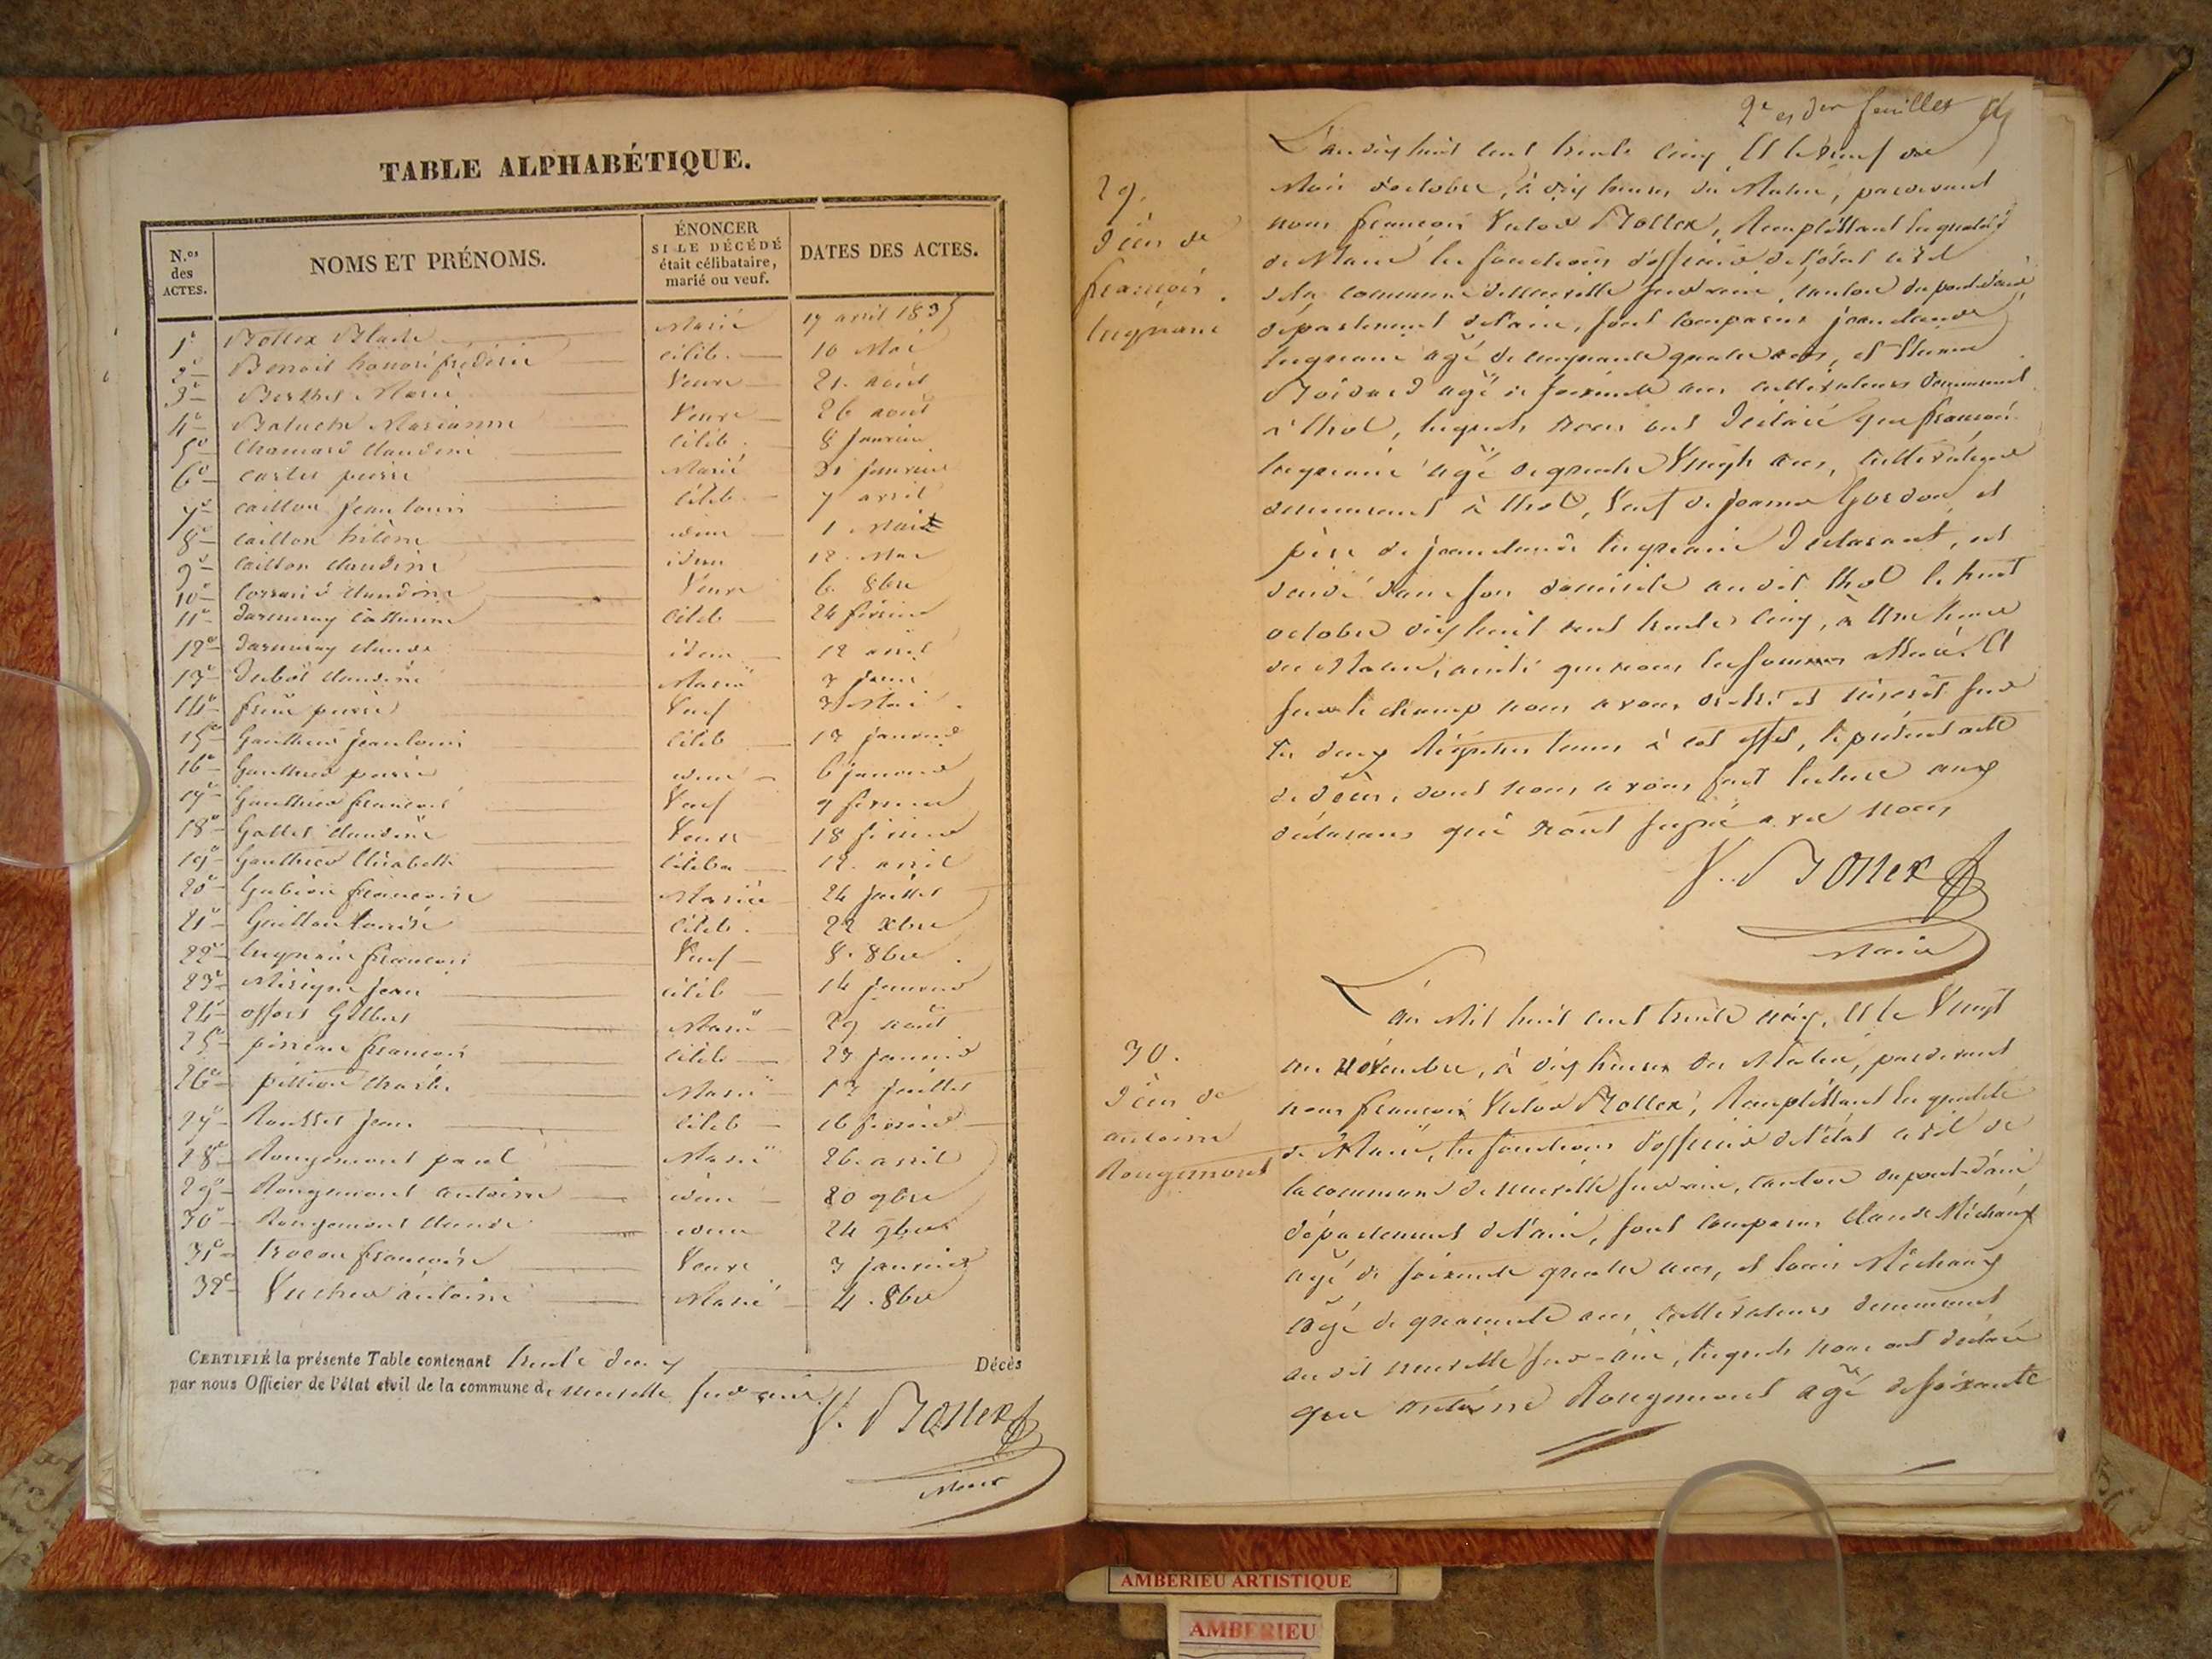 TABLE ALPHABÉTIQUE.
N.os des ACTES.
NOMS ET PRÉNOMS.
ÉNONCER SI LE DÉCÉDÉ était célibataire, marié ou veuf.
DATES DES ACTES.
1e Bottex Marié 17 avril 1835
2e Benoit honoré frédéric célib. 10 Mai
3e Berthet Marie Veuve 21. août
4e Marianne Veuve 26 août
5e Chamard Claudine Célib. 8 Janvier
6e Carlet pierre Marié 31 janvier
7e Caillon Jean louis Célib. 7 avril
8e Caillon hélène idem 1. Mai
9e Caillon Claudine idem 12. Mai
10e Claudine Veuve 6. 8bre
11e Darmeray Catherine Célib 24 février
12e Darmeray Claude idem 12 avril
13e Claudine Mariée 3 juin
14e pierre Veuf 3 Mai
15e Gauthier Jean louis Célib 13 janvier
16e Gauthier pierre idem 6 janvier
17e Gauthier françois Veuf 9 février
18e Gallet Claudine Veuve 18 février
19e Gauthier Elisabeth Céliba 12. avril
20e françoise Mariée 24 juillet
21e Guillon Célib. 22 Xbre
22e Lugranie françois Veuf 8. 8bre
23e Jean Célib 14 janvier
24e Gilbert Marié 29 août
25e françois Célib 23 janvier
26e Charles Marié 13 juillet
27e Rousset Jean Célib 16 février
28e Rougemont paul Marié 26. avril
29e Rougemont antoine idem 20 9bre
30e Rougemont Claude idem 24 9bre
31e françoise Veuve 3 janvier
32e Vucher antoine Marié 4. 8bre
CERTIFIÉ la présente Table contenant trente deux Décès
par nous Officier de l'état civil de la commune de neuville sur ain.
V. Bottex
Maire
2e et der feuillet
29.
Décès de
françois
Lugranie
L'an dix huit cent trente cinq Et le neuf du
Mois d'octobre, à dix heures du Matin, pardevant
nous françois Victor Bottex, Remplissant en qualité
de Maire les fonctions d'officier de l'état civil
de la commune de neuville sur ain, canton du pont-d'ain
département de l'ain, sont comparus jean claude
Lugranie agé de cinquante quatre ans, et Etienne
agé de soixante ans cultivateurs demeurant
à thol, lesquels nous ont déclaré que françois
Lugranie agé de quatre Vingts ans, cultivateur
demeurant à thol, Veuf de jeanne Gordon, et
père de jean claude Lugranie Déclarant, est
décédé dans son domicile au dit thol le huit
octobre dix huit cent trente cinq, à Une heure
du Matin, ainsi que nous les sommes assuré. Et
sur le champ nous avons dressé et inscrit sur
les deux Régistres tenus à cet effet, le présent acte
de décès, dont nous avons fait lecture aux
déclarans qui n'ont signé avec nous
V. Bottex
Maire
30.
Décès de
antoine
Rougemont
L'an Mil huit cent trente cinq, Et le Vingt
un novembre, à dix heures du Matin, pardevant
nous françois Victor Bottex, Remplissant en qualité
de Maire, les fonctions d'officier de l'état civil de
la commune de neuville sur ain, canton du pont-d'ain
département de l'ain, sont comparus Claude Michaux
agé de soixante quatre ans, et louis Michaux
agé de quarante ans, cultivateurs demeurant
au dit neuville sur-ain, lesquels nous ont déclaré
que antoine Rougemont agé de soixante
AMBERIEU ARTISTIQUE
AMBERIEU